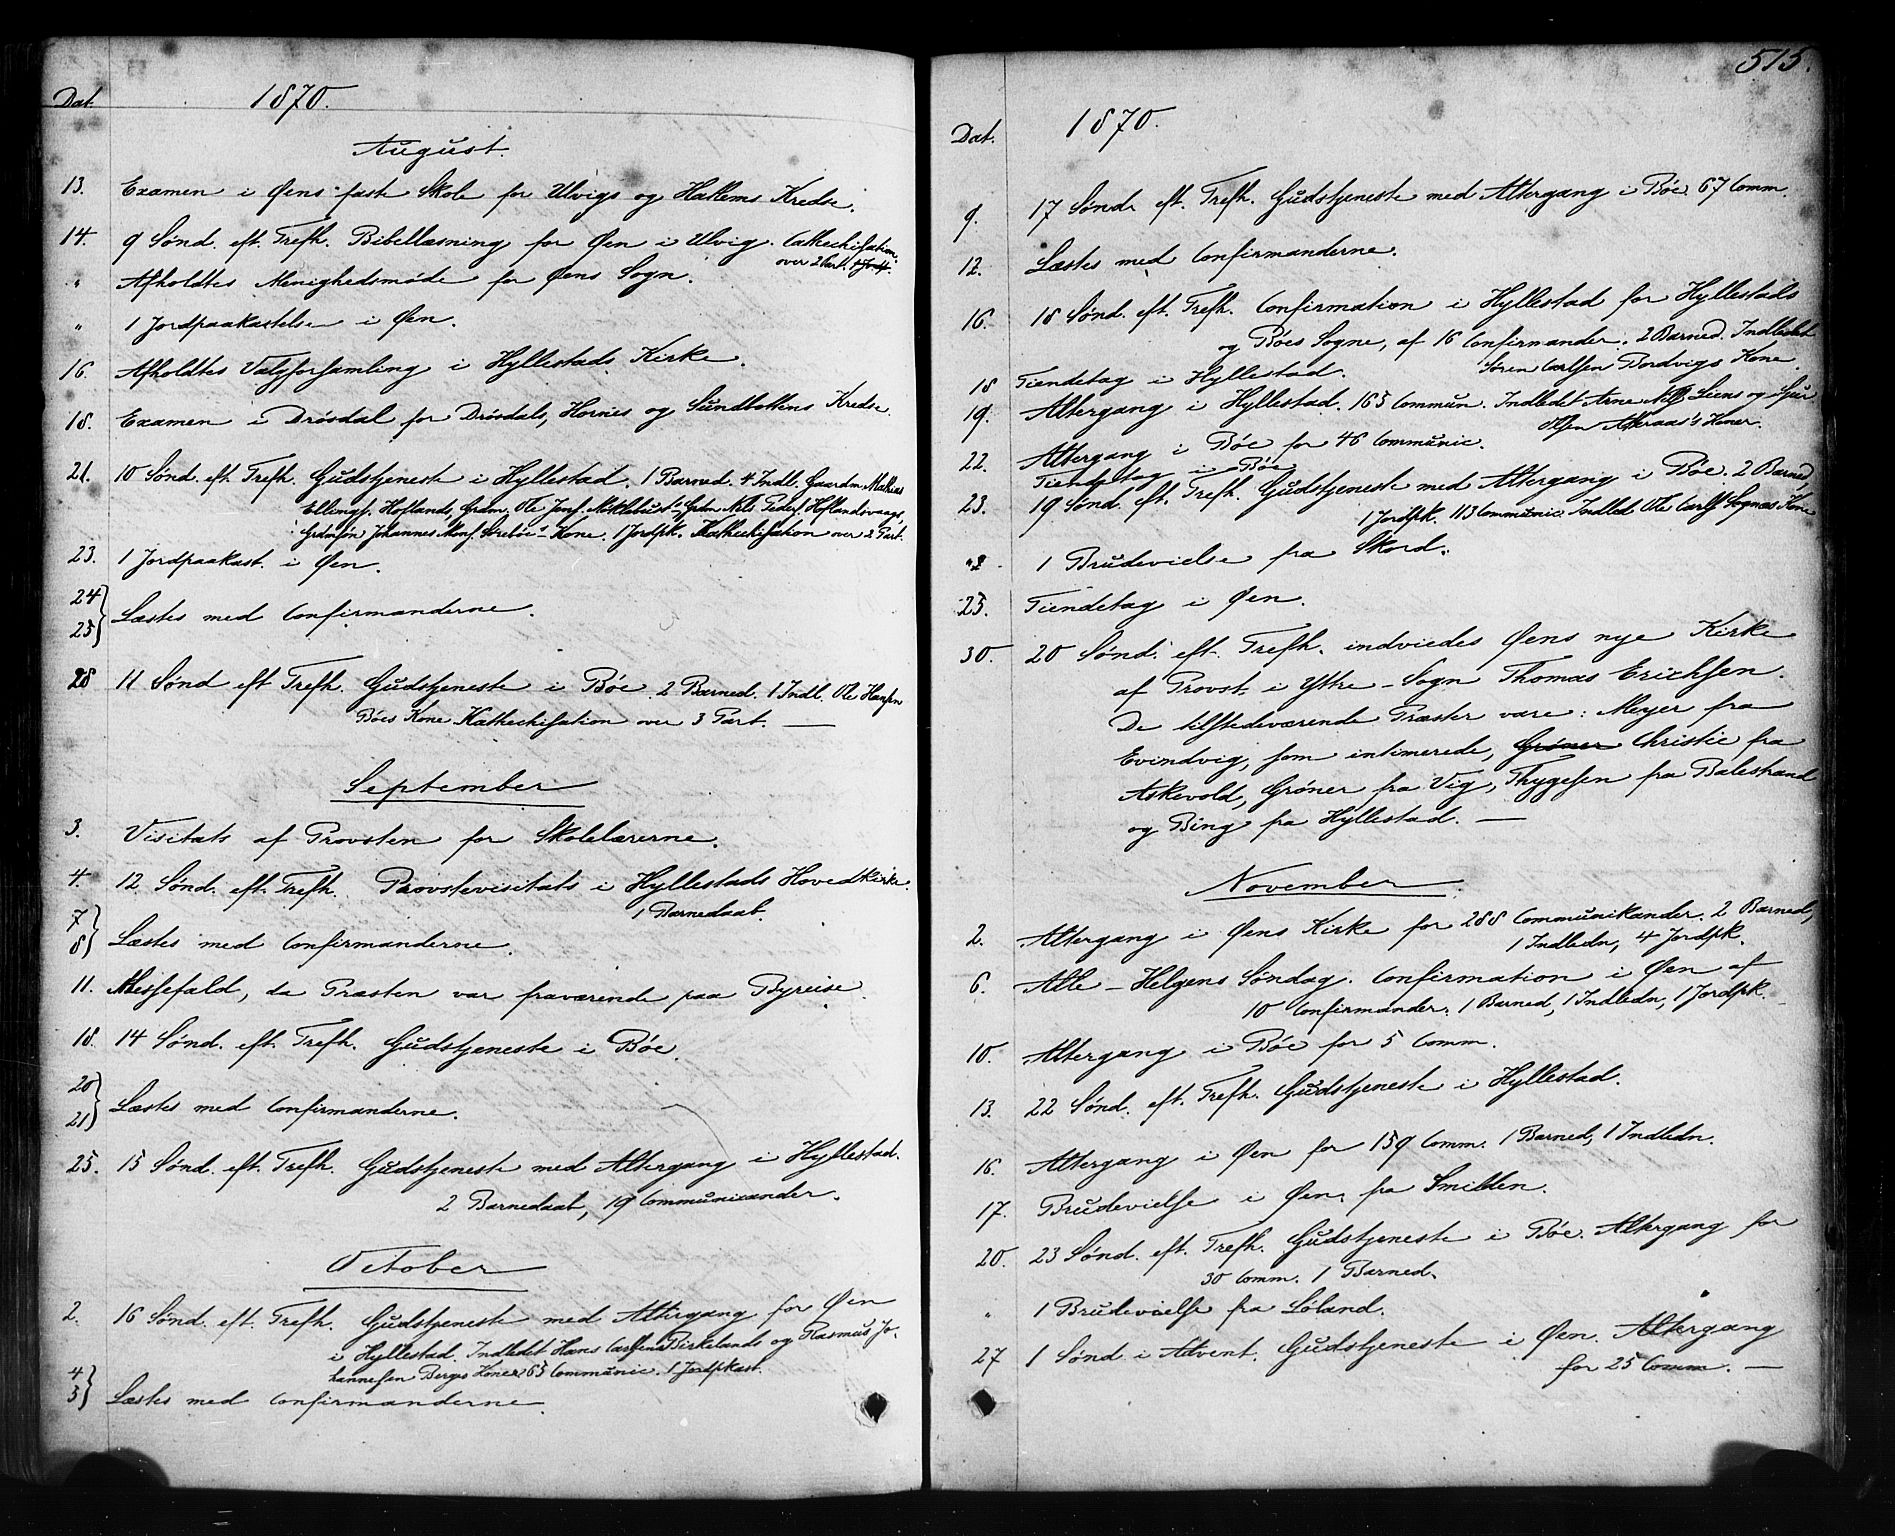 Dat. 1870.
August.
13. Examen i Øens fast Skole for Ulvigs og Hatlems Kredse.
14. 9 Sønd. eft. Trefh. Bibellæsning for Øen i Ulvig. Cathechisation
over 2 Part.
" Afholdtes Menighedsmøde for Øens Sogn.
" 1 Jordpaakastelse i Øen.
16. Afholdtes Valgforsamling i Hyllestads Kirke.
18. Examen i Drösdal for Drösdals, Hornes og Sundbottens Kredse.
21. 10 Sønd. eft. Trefh. Gudstjeneste i Hyllestad. 1 Barned. 4 Indl. Gaardm. Mathias
Ellings. Hoflands, Grdm. Ole Jons. Mitlebust's, Grdm. Nils Peders. Hoflandsvaags,
Grdmsøn Johannes Mons. Sörebøe's Kone. 1 Jordpk. Kathechisation over 2 Part.
23. 1 Jordpaakast. i Øen.
24
25} Læstes med Confirmanderne.
28 11 Sønd eft Trefh. Gudstjeneste i Bøe. 2 Barned. 1 Indl. Ole Hansen
Bøes Kone. Kathechisation over 3 Part. —
September
3. Visitats af Provsten for Skolelærerne.
4. 12 Sønd. eft. Trefh. Provstevisitats i Hyllestads Hovedkirke.
1 Barnedaab.
7
8} Læstes med Confirmanderne.
11. Messefald, da Præsten var fraværende paa Byreise.
18. 14 Sønd. eft. Trefh. Gudstjeneste i Bøe.
20
21} Læstes med Confirmanderne.
25. 15 Sønd. eft. Trefh. Gudstjeneste med Altergang i Hyllestad.
2 Barnedaab, 19 Communicander.
October
2. 16 Sønd. eft. Trefh. Gudstjeneste med Altergang for Øen
i Hyllestad. Indledet Hans Carlsens Birkelands og Rasmus Jo-
hannesen Berges Koner. 65 Communic. 1 Jordpkast.
4
5} Læstes med Confirmanderne.
515.
Dat. 1870.
9. 17 Sønd. eft. Trefh. Gudstjeneste med Altergang i Bøe 67 Comm.
12. Læstes med Confirmanderne.
16. 18 Sønd. eft. Trefh. Confirmation i Hyllestad for Hyllestads
og Bøes Sogne, af 16 Confirmander. 2 Barned. Indledet
Søren Carlsen Bordvigs Kone.
18 Tiendetag i Hyllestad.
19. Altergang i Hyllestad. 165 Commun. Indledet Arne Seens og
Olsen Koner.
22. Altergang i Bøe for 46 Communic.
Tiendetag i Bøe
23. 19 Sønd. eft. Trefh. Gudstjeneste med Altergang i Bøe. 2 Barned,
1 Jordpk. 113 Communic. Indled. Ole Carls. Sognæs Kone
" 1 Brudevielse fra Skord.
25. Tiendetag i Øen.
30. 20 Sønd. eft. Trefh. indviedes Øens nye Kirke
af Provst i Yttre-Sogn Thomas Erichsen.
De tilstedeværende Præster vare: Meyer fra
Evindvig, som intimerede, Grøner Christie fra
Askevold, Grøner fra Vig, Thygesen fra Balestrand
og Bing fra Hyllestad. —
November.
2. Altergang i Øens Kirke for 288 Communikander. 2 Barned,
1 Indledn, 4 Jordpk.
6. Alle-Helgens Søndag. Confirmation i Øen af
10 Confirmander. 1 Barned, 1 Indledn, 1 Jordpk.
10. Altergang i Bøe for 5 Comm.
13. 22 Sønd. eft. Trefh. Gudstjeneste i Hyllestad.
16. Altergang i Øen for 159 Comm. 1 Barned, 1 Indledn.
17. Brudevielse i Øen fra Smilden.
20. 23 Sønd. eft. Trefh. Gudstjeneste i Bøe. Altergang for
30 Comm. 1 Barned.
" 1 Brudevielse fra Løland.
27 1 Sønd i Advent. Gudstjeneste i Øen. Altergang
for 25 Comm. —